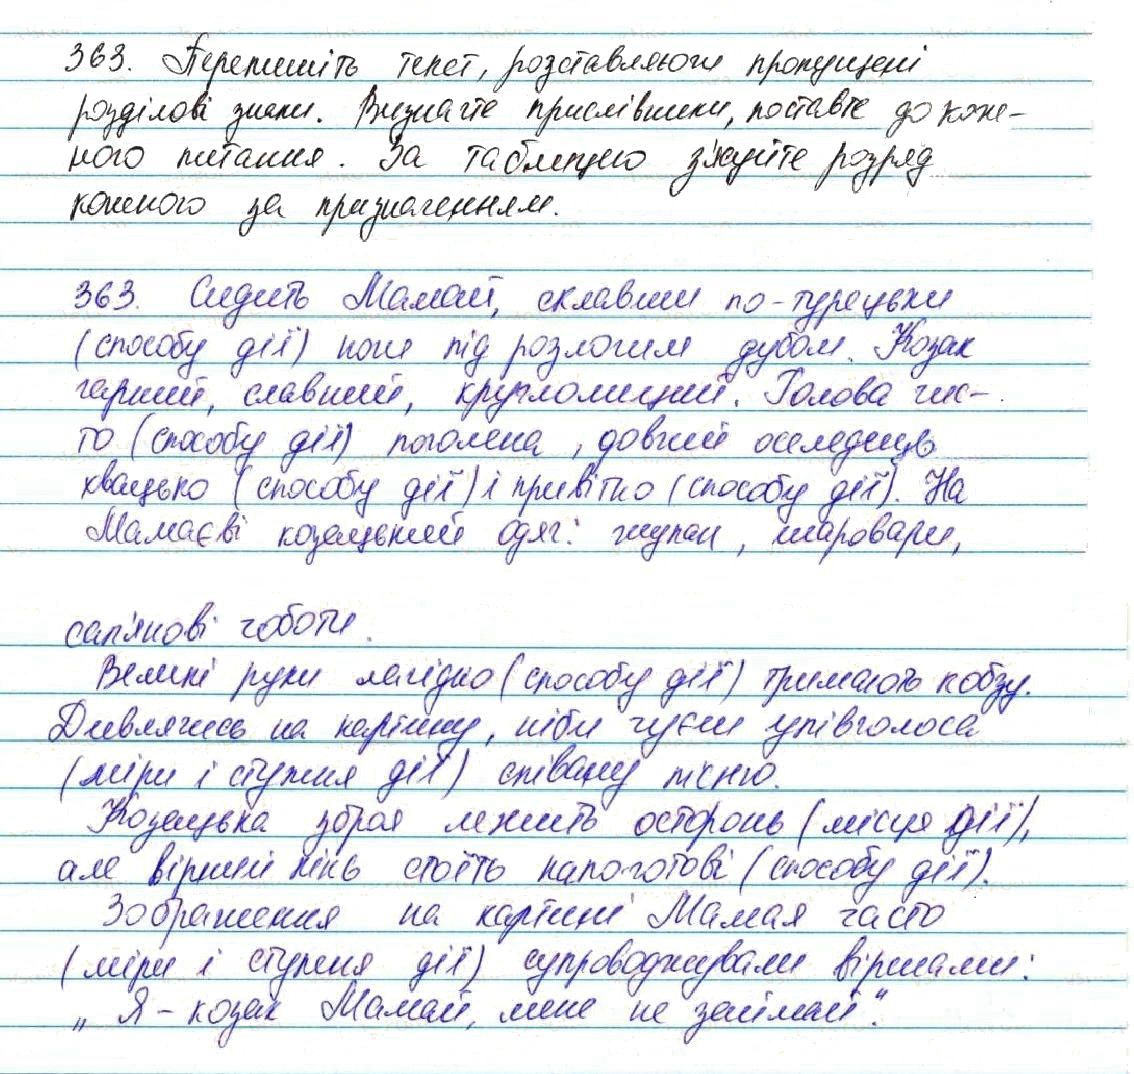 363. Перепишіть текст, розставляючи пропущені
розділові знаки. Визначте прислівники, поставте до кож-
ного питання. За таблицею з'ясуйте розряд
кожного за призначенням.
363. Сидить Мамай, склавши по-турецьки
(способу дії) ноги під розлогим дубом. Козак
гарний, славний, круглолиций. Голова чис-
то (способу дії) поголена, довгий оселедець
хвацько (способу дії) і привітно (способу дії). На
Мамаєві козацький одяг: жупан, шаровари,
сап'янові чоботи.
Великі руки лагідно (способу дії) тримають кобзу.
Дивлячись на картину, ніби чуєш упівголоса
(міри і ступеня дії) співану пісню.
Козацька зброя лежить осторонь (місця дії),
але вірний кінь стоїть напоготові (способу дії).
Зображення на картині Мамая часто
(міри і ступеня дії) супроводжували віршами:
„Я – козак Мамай, мене не займай".